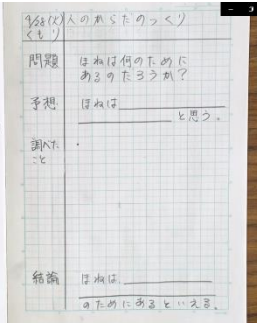 9/28(火) 人のからだのつくり
くもり
問題 ほねは何のために
あるのだろうか？
予想 ほねは
と思う。
調べた
こと
結論 ほねは、
のためにあるといえる。